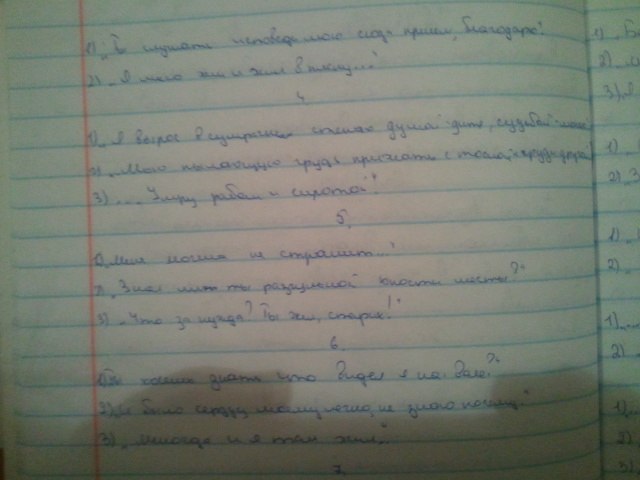 1) „Ты слушать исповедь мою сюда пришел, благодарю!"
2) „Я мало жил и жил в плену..."
4
1) „Я вырос в сумрачных стенах душой дитя, судьбой монах
2) „Мою пылающую грудь прижать с тоской к груди другой
3) „... Умру рабом и сиротой"
5
1) „Меня могила не страшит..."
2) „Знал ли ты разгульной юности мечты?"
3) „Что за нужда? Ты жил, старик!"
6
1) „Ты хочешь знать что видел я на воле?"
2) „И было сердцу моему легко, не знаю почему"
3) „Некогда и я там жил"
7
1)
2)
3) Я
1)
2) З
1)
2)
1)
2)
1)
2)
3)